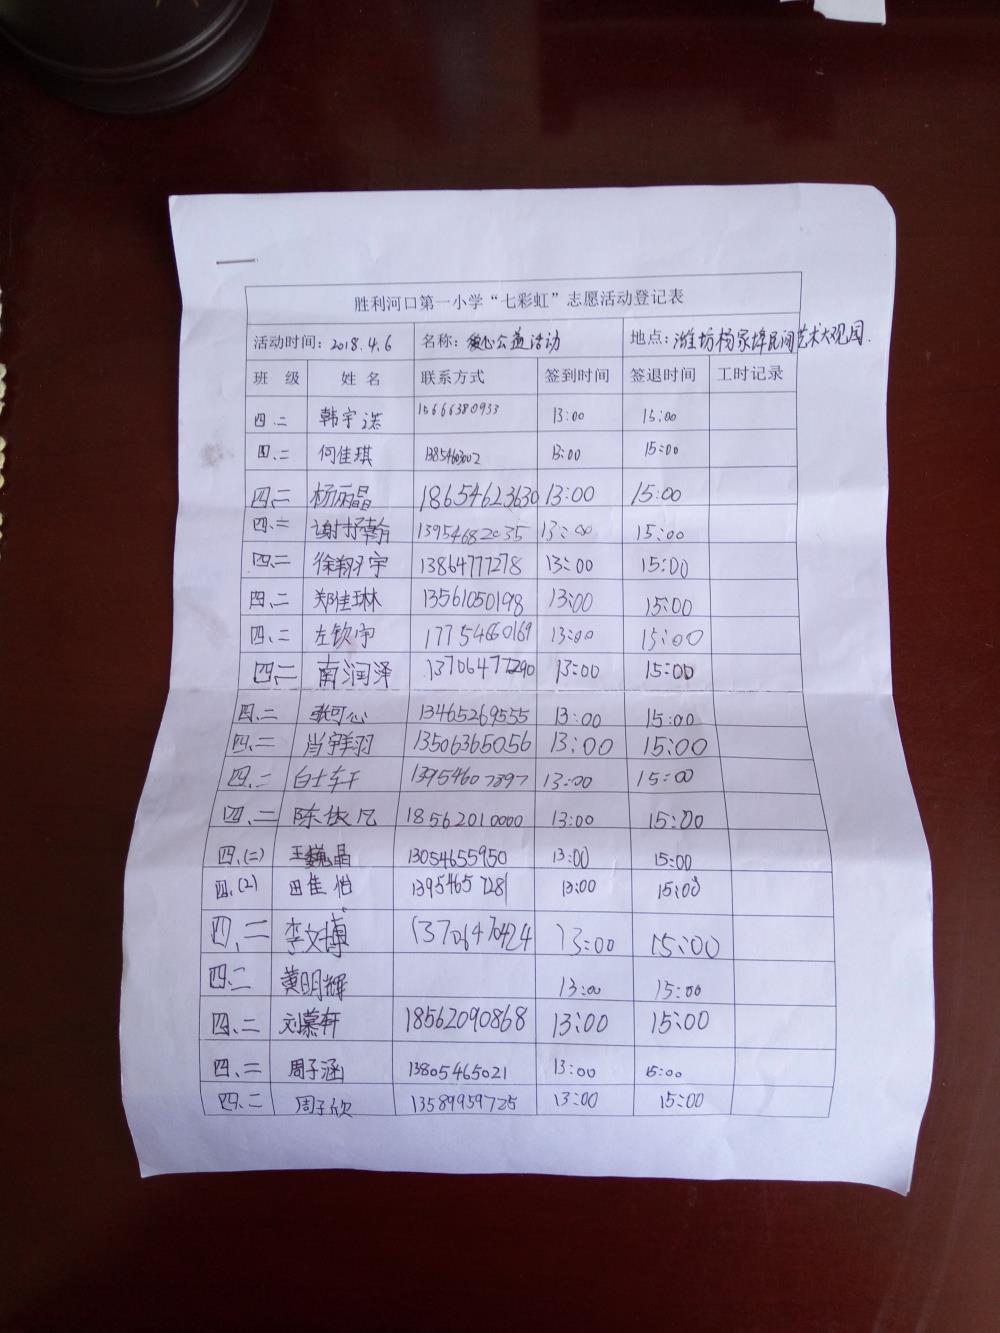 胜利河口第一小学“七彩虹”志愿活动登记表
活动时间：2018.4.6 名称：爱心公益活动 地点：潍坊杨家埠民间艺术大观园.
班 级 姓 名 联系方式 签到时间 签退时间 工时记录
四.二 韩宇 15666380933 13:00 15:00
四.二 何佳琪 13:00 15:00
四.二 杨丽晶 18654623630 13:00 15:00
四.二 谢抒翰 13954682035 13:00 15:00
四.二 徐翔宇 13864777278 13:00 15:00
四.二 郑佳琳 13561050198 13:00 15:00
四.二 左钦宇 17754660169 13:00 15:00
四.二 南润泽 13706477290 13:00 15:00
四.二 张可心 13465269555 13:00 15:00
四.二 肖宇翔 13506365056 13:00 15:00
四.二 白士轩 13954607397 13:00 15:00
四.二 陈依凡 18562010000 13:00 15:00
四.(二) 王巍晶 13054655950 13:00 15:00
四.(2) 田佳怡 13954657281 13:00 15:00
四.二 李文博 13706470424 13:00 15:00
四.二 黄明辉 13:00 15:00
四.二 刘慕轩 18562090868 13:00 15:00
四.二 周子涵 13805465021 13:00 15:00
四.二 周子欣 13589959725 13:00 15:00